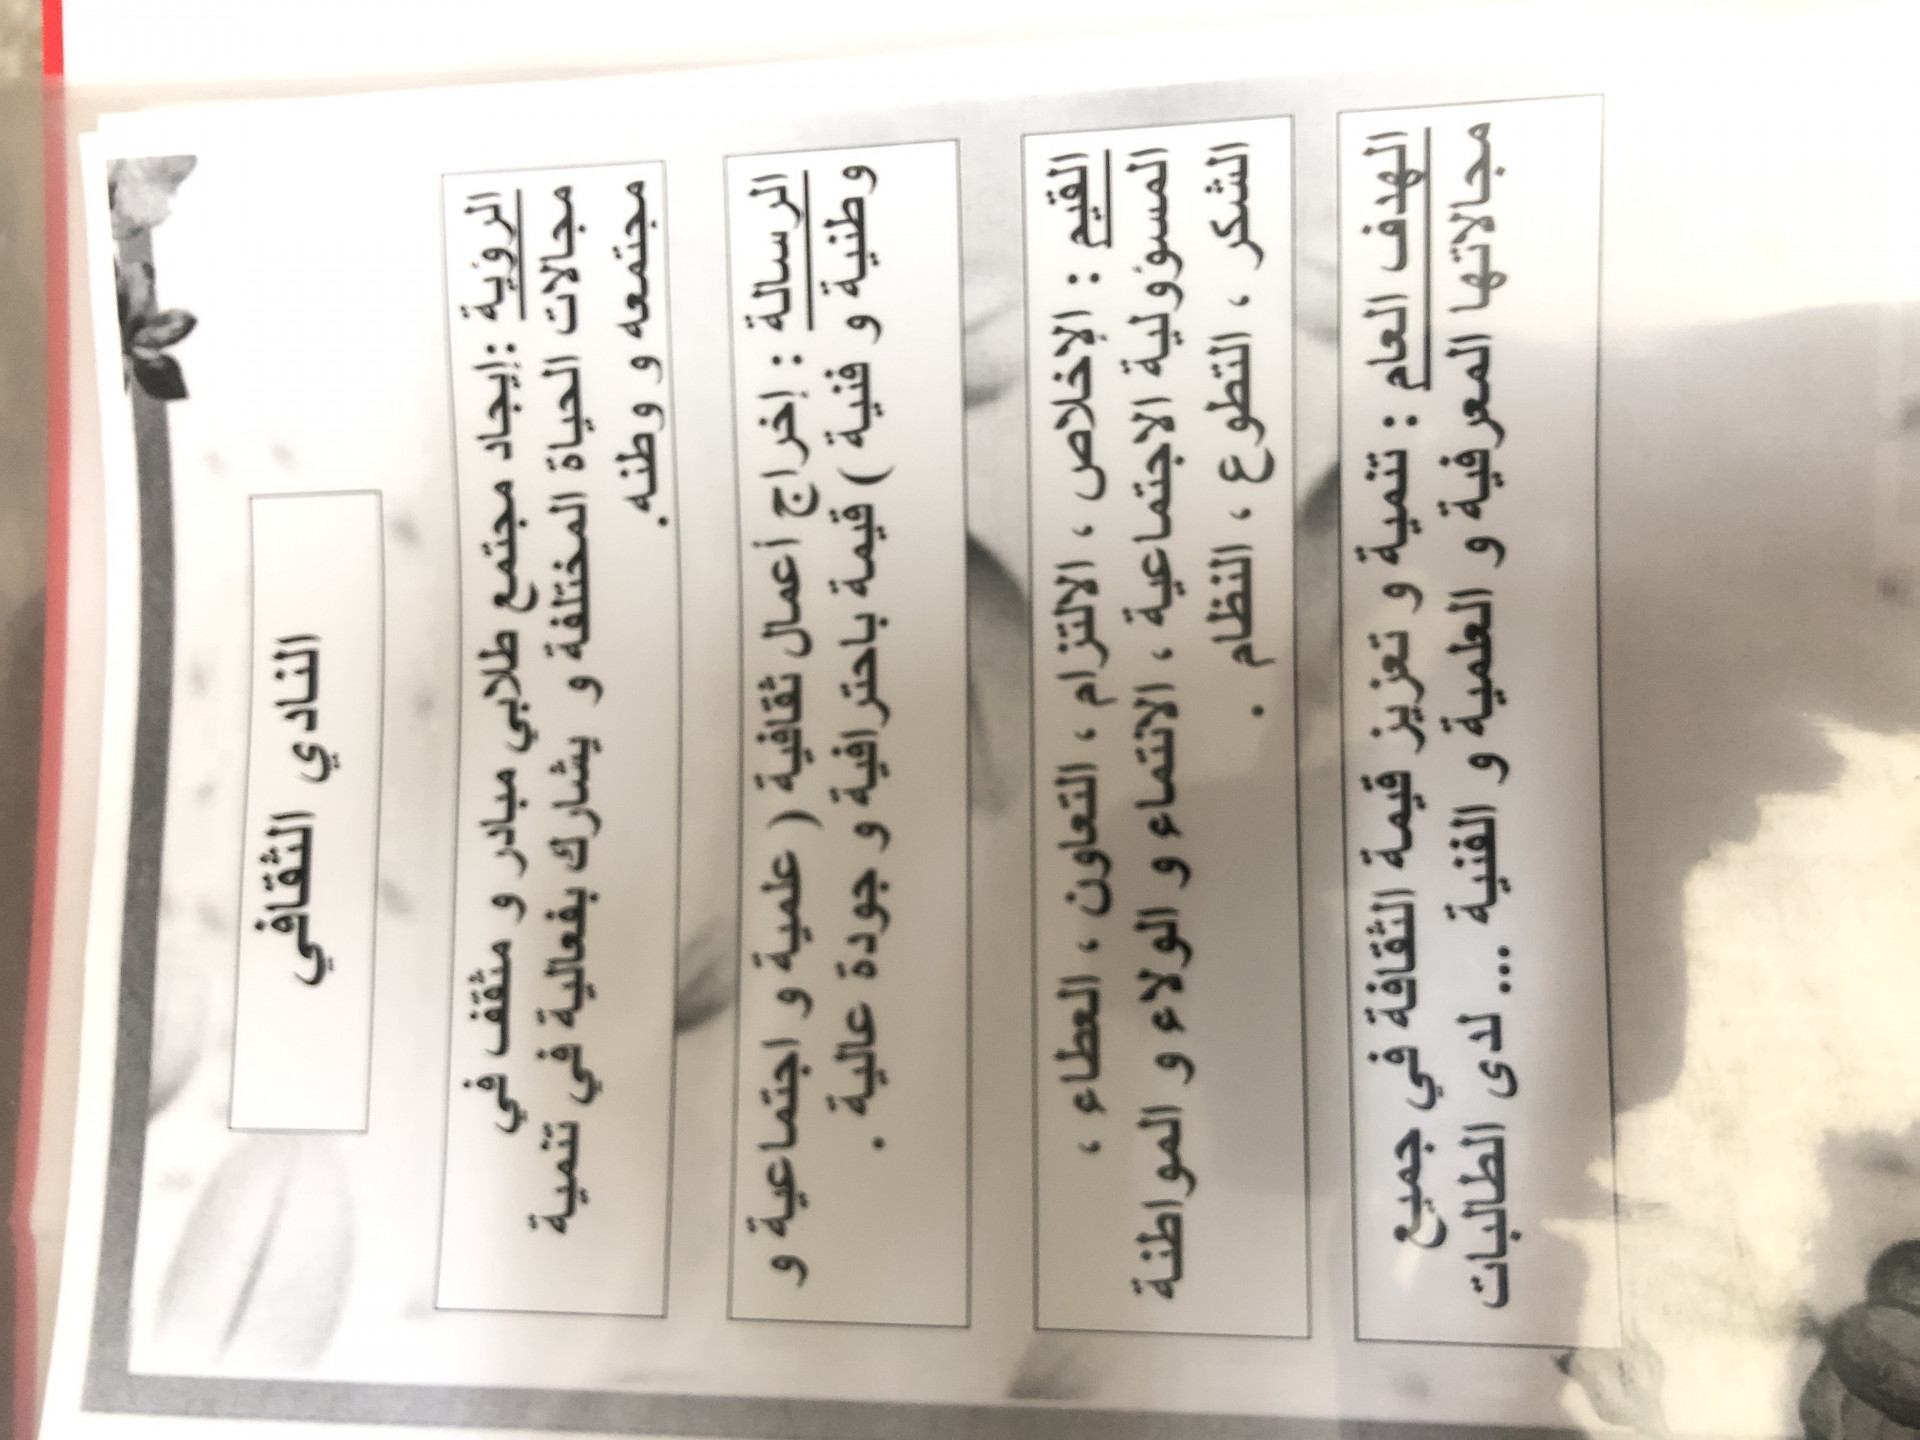 النادي الثقافي
الرؤية :إيجاد مجتمع طلابي مبادر و مثقف في
مجالات الحياة المختلفة و يشارك بفعالية في تنمية
مجتمعه و وطنه.
الرسالة : إخراج أعمال ثقافية ( علمية و اجتماعية و
وطنية و فنية ) قيمة باحترافية و جودة عالية .
القيم : الإخلاص ، الالتزام ، التعاون ، العطاء ،
المسؤولية الاجتماعية ، الانتماء و الولاء و المواطنة
الشكر ، التطوع ، النظام .
الهدف العام : تنمية و تعزيز قيمة الثقافة في جميع
مجالاتها المعرفية و العلمية و الفنية ... لدى الطالبات